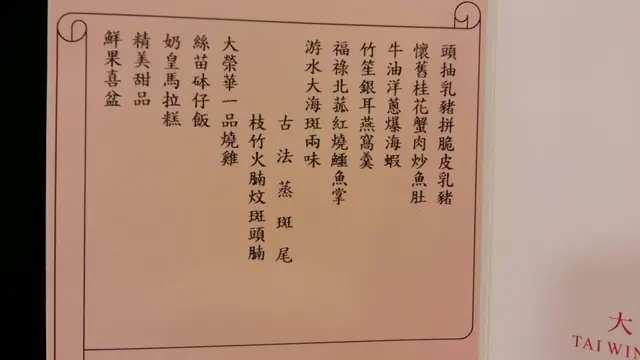 頭抽乳豬拼脆皮乳豬
懷舊桂花蟹肉炒魚肚
牛油洋蔥爆海蝦
竹笙銀耳燕窩羹
福祿北菰紅燒鱷魚掌
游水大海斑兩味
古法蒸斑尾
枝竹火腩炆斑頭腩
大榮華一品燒雞
絲苗砵仔飯
奶皇馬拉糕
精美甜品
鮮果喜盆
大
TAI WIN